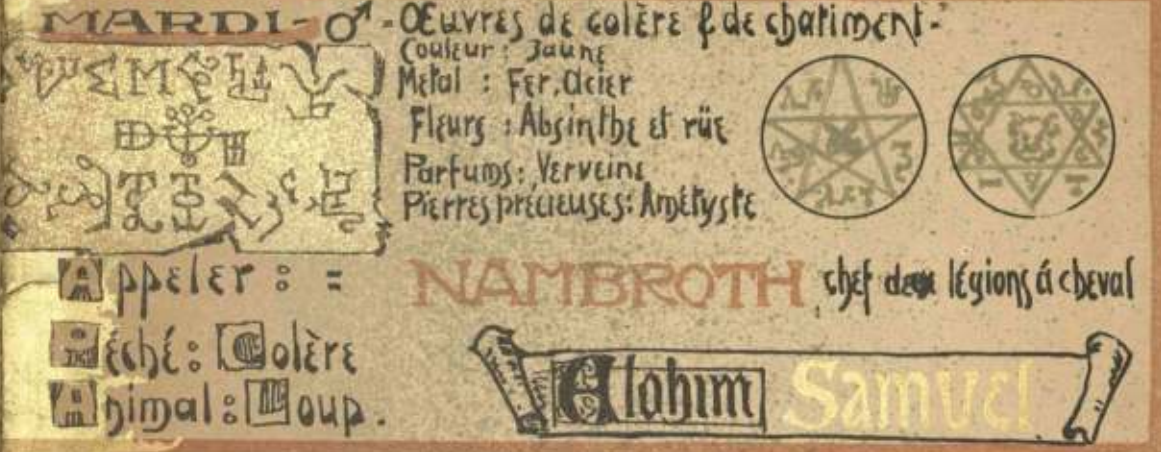 MARDI - ♂ - Œuvres de colère & de chatiment -
Couleur : Jaune
Metal : Fer. Acier
Fleurs : Absinthe et rüe
Parfums : Verveine
Pierres précieuses : Améthyste
Appeler : = NAMBROTH chef des légions á cheval
Péché : Colère
Animal : Loup.
Elohim Samuel